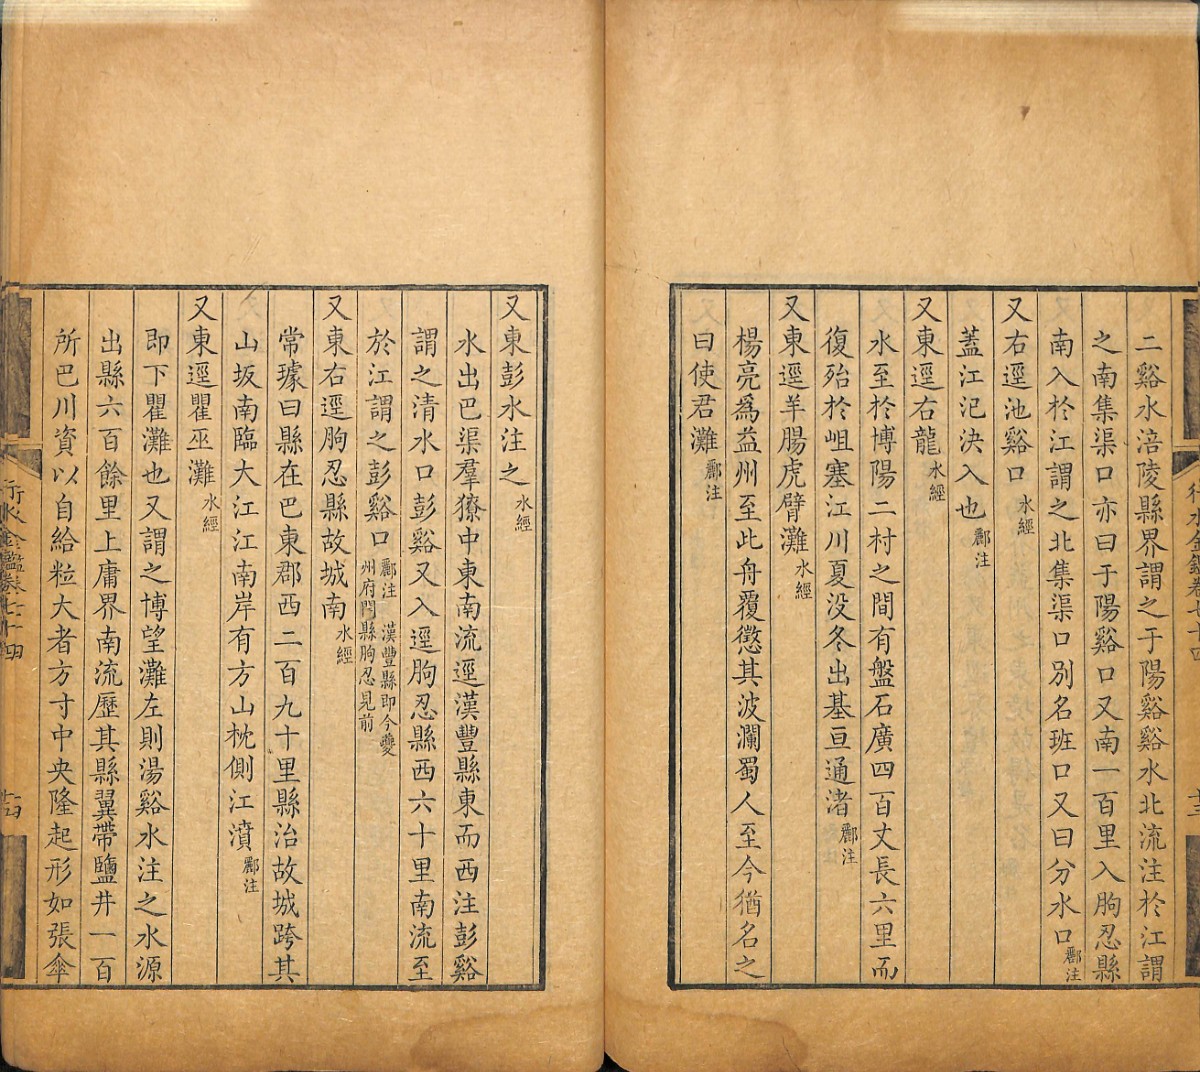 二谿水涪陵縣界謂之于陽谿谿水北流注於江謂
之南集渠口亦曰于陽谿口又南一百里入朐忍縣
南入於江謂之北集渠口別名班口又曰分水口酈注
又右逕池谿口水經
蓋江汜決入也酈注
又東逕右龍水經
水至於博陽二村之間有盤石廣四百丈長六里而
復殆於岨塞江川夏没冬出基亘通渚酈注
又東逕羊腸虎臂灘水經
楊亮爲益州至此舟覆懲其波瀾蜀人至今猶名之
曰使君灘酈注
又東彭水注之水經
水出巴渠羣獠中東南流逕漢豐縣東而西注彭谿
謂之清水口彭谿又入逕朐忍縣西六十里南流至
於江謂之彭谿口酈注 漢豐縣即今夔
州府開縣朐忍見前
又東右逕朐忍縣故城南水經
常璩曰縣在巴東郡西二百九十里縣治故城跨其
山坂南臨大江江南岸有方山枕側江濆酈注
又東逕瞿巫灘水經
即下瞿灘也又謂之博望灘左則湯谿水注之水源
出縣六百餘里上庸界南流歷其縣翼帶鹽井一百
所巴川資以自給粒大者方寸中央隆起形如張傘
行水金鑑卷七十四
十四